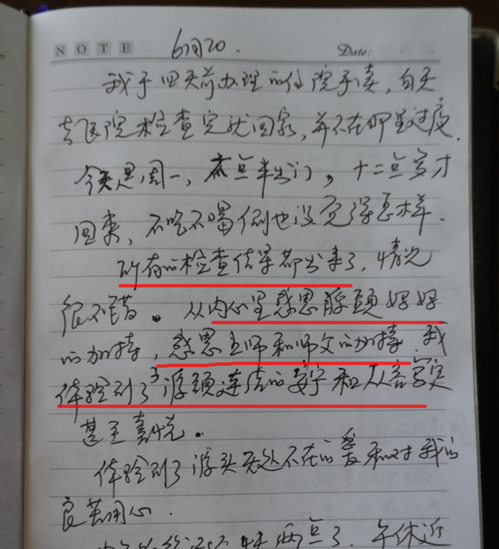 NOTE 6月20. Date:
我于四天前办理的住院手续,白天
去医院检查完就回家,并不在那里过夜.
今天是周一,点半出门,十二点多才
回来,不吃不喝倒也没觉得怎样.
所有的检查结果都出来了,情况
很不错。从内心里感恩源头妈妈
的加持,感恩主师和师父的加持,我
体验到了源头连结的安宁和从容定
甚至喜悦。
体验到了源头无处不在的爱和对我的
良苦用心.
两点了,午休近